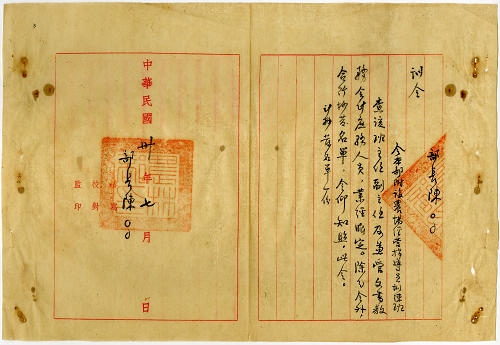 訓令
令本部附設農場經營指導員訓練班
查該班主任副主任及兼管文書教
務會計庶務人員，業經派定。除分令外，
合行抄發名單，令仰知照。此令。
計抄發名單一份
部長陳○○
中華民國卅年七月日
部長陳○○
校對
監印